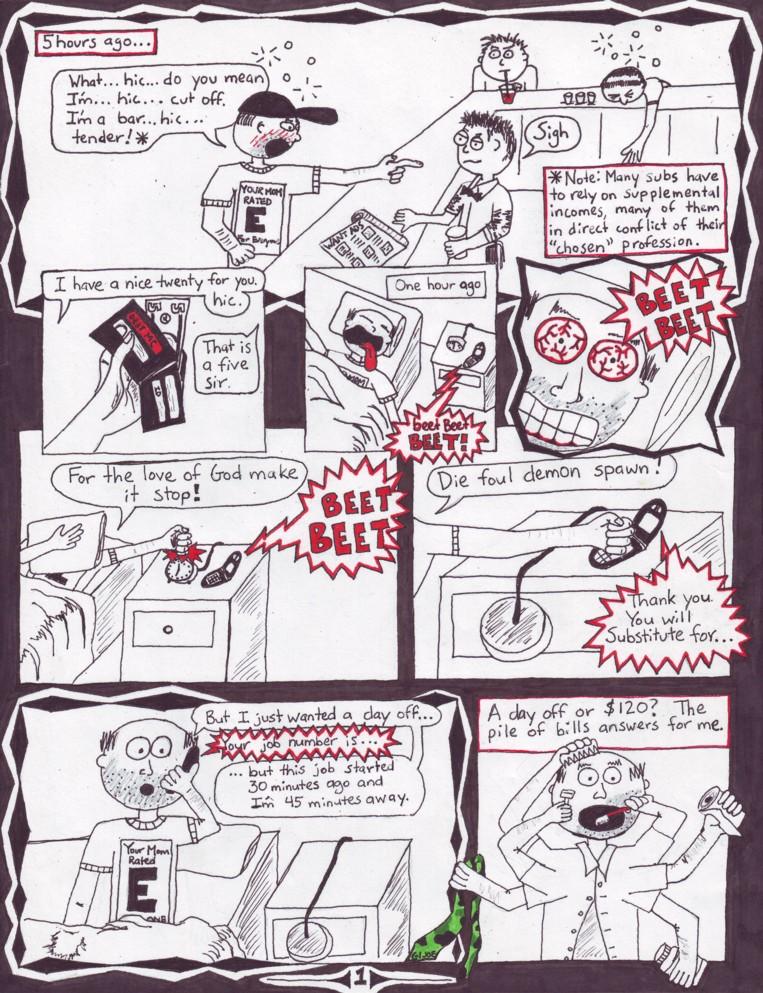 5 hours ago...
What... hic... do you mean
I'm... hic... cut off.
I'm a bar... hic...
tender!*
Sigh
YOUR MOM
RATED
E
For Everyone
WANT ADS
*Note: Many subs have
to rely on supplemental
incomes, many of them
in direct conflict of their
"chosen" profession.
I have a nice twenty for you.
hic.
That is
a five
sir.
One hour ago
beet Beet
BEET!
BEET
BEET
For the love of God make
it stop!
BEET
BEET
Die foul demon spawn!
Thank you.
You will
Substitute for...
But I just wanted a day off...
Your job number is...
... but this job started
30 minutes ago and
I'm 45 minutes away.
Your Mom
Rated
E
ONE
A day off or $120? The
pile of bills answers for me.
G.I. JOE
1